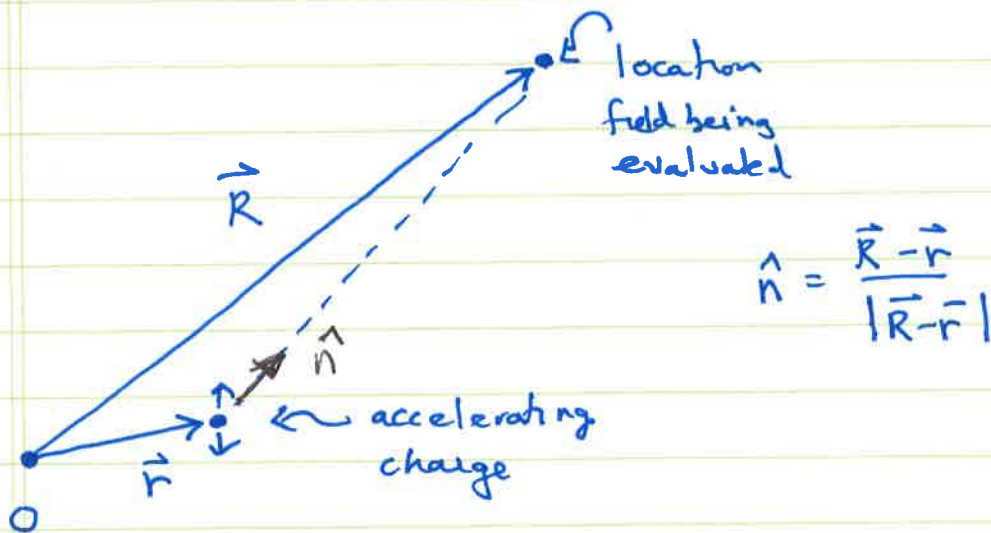 location
field being
evaluated
R⃗
n̂ = (R⃗ - r⃗) / |R⃗ - r⃗|
n̂
accelerating
charge
r⃗
O